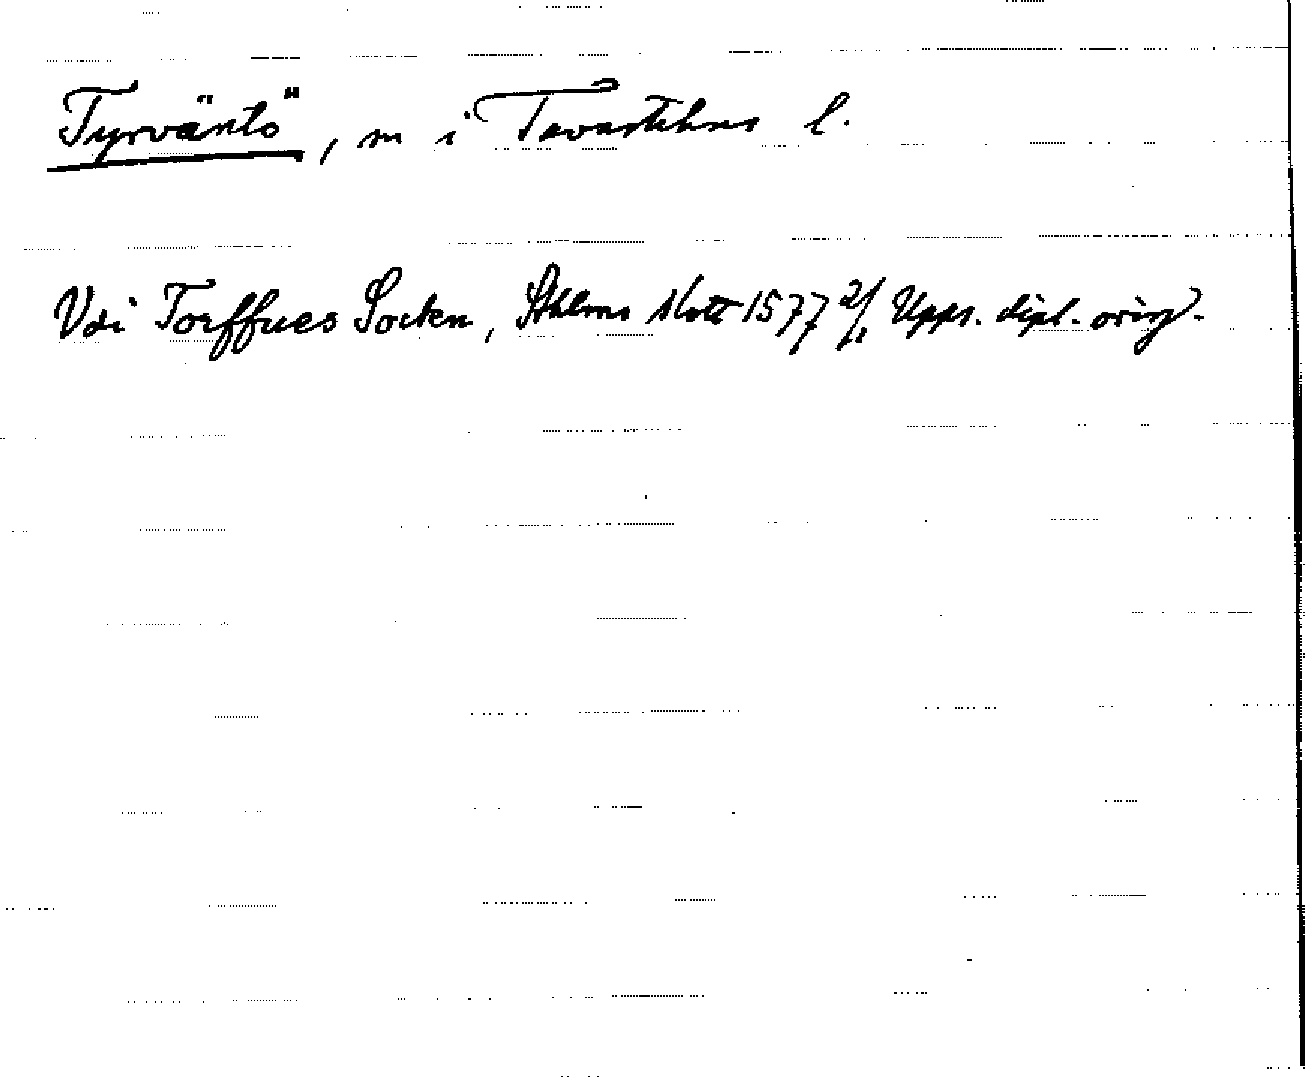 Tyrväntö, sn i Tavastehus l.
Vdi Torffues Socken, Sthlms slott 1577 2/1 Upps. dipl. orig.